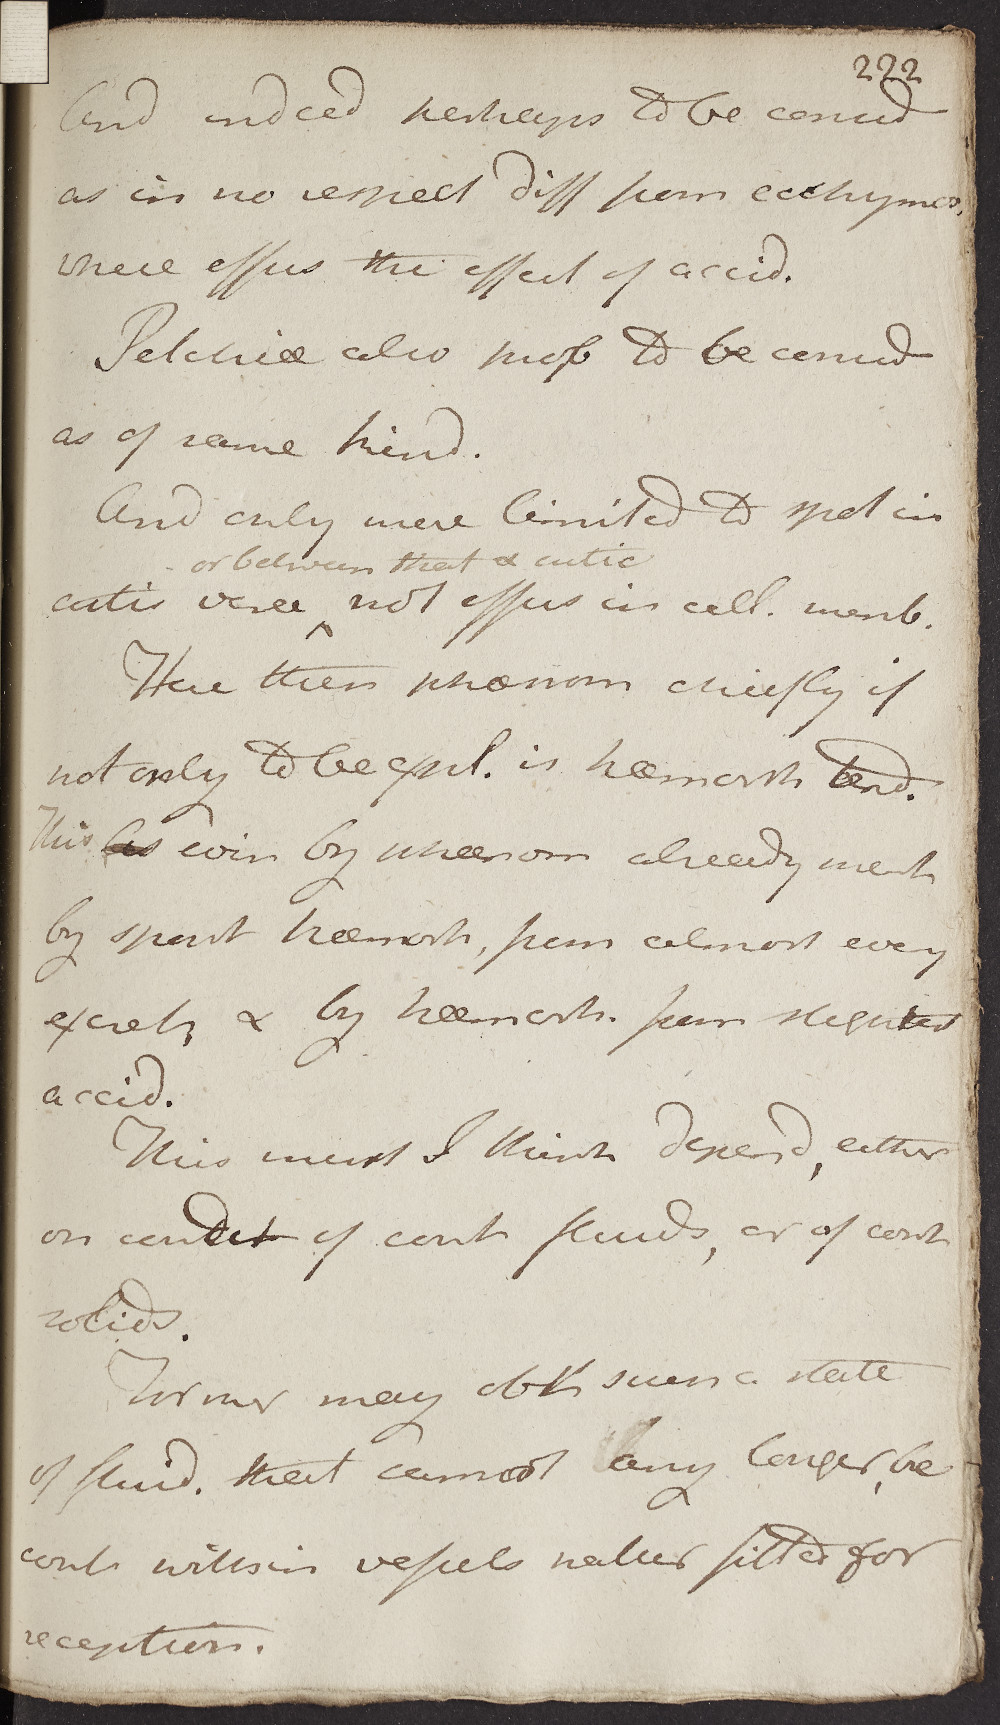 222
And indeed perhaps to be consid
as in no respect diff from ecchymos.
where effus the effect of accid.
Petchiæ also prob to be consid
as of same kind.
And only more limited to spot in
or between that & cutic
cutis veræ ^ not effus in cell. memb.
Here then phænom chiefly if
not only to be expl. is hæmorrh tend.
This evin by phænom already ment
by spont hæmorrh, from almost every
excret, & by hæmorrh. from slightest
accid.
This must I think depend, either
on condit of cont fluids, or of cont
solids.
Former may obt such a state
of fluid. that cannot any longer, be
cont within vessels natur fitted for
reception.